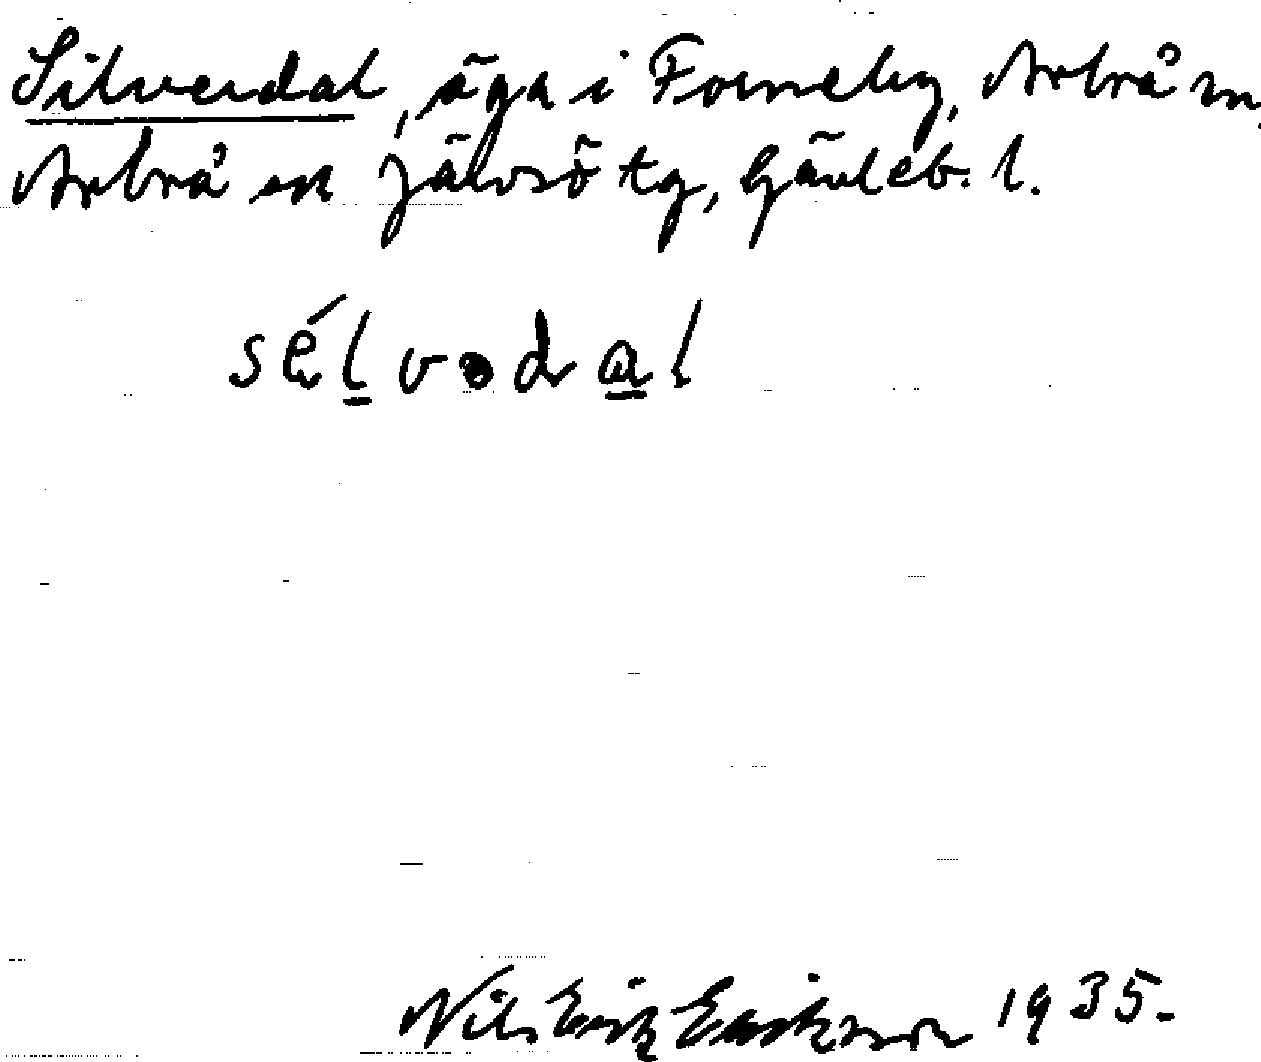 Silverdal, äga i Forneby, Arbrå sn,
Arbrå och Järvsö tg, Gävleb. l.
sélvədal
Nils Erik Eriksson 1935.